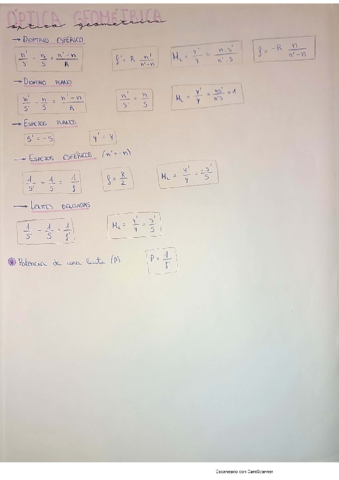 ÓPTICA GEOMÉTRICA
→ DIOPTRIO ESFÉRICO
n'/s' - n/s = n'-n/R    f' = R n'/n'-n    M_L = y'/y = n·s'/n'·s    f = -R n/n'-n
→ DIOPTRIO PLANO
n'/s' - n/s = n'-n/R    n'/s' = n/s    M_L = y'/y = ns'/n's = 1
→ ESPEJOS PLANOS
s' = -s    y' = y
→ ESPEJOS ESFÉRICOS (n' = -n)
1/s' + 1/s = 1/f    f = R/2    M_L = y'/y = -s'/s
→ LENTES DELGADAS
1/s' - 1/s = 1/f'    M_L = y'/y = s'/s
Potencia de una lente (P)    P = 1/f'
Escaneado con CamScanner